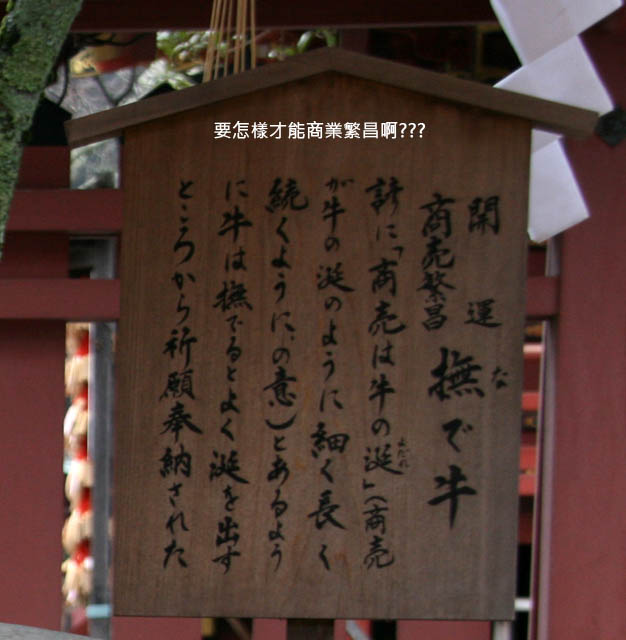 要怎樣才能商業繁昌啊???
開運
商売繁昌
撫で牛
な
諺に「商売は牛の涎」(商売
よだれ
が牛の涎のように細く長く
続くように、の意)とあるよう
に牛は撫でるとよく涎を出す
ところから祈願奉納された